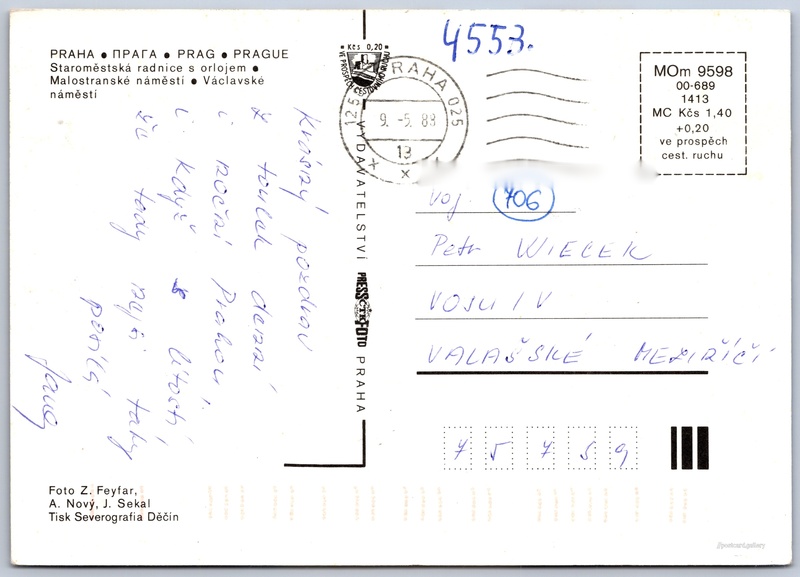 4553.
PRAHA ● ПРАГА ● PRAG ● PRAGUE
Staroměstská radnice s orlojem ●
Malostranské náměstí ● Václavské
náměstí
Kčs 0,20
VE PROSPĚCH CESTOVNÍHO RUCHU
PRAHA 025
125
9.-5.88
13
MOm 9598
00-689
1413
MC Kčs 1,40
+0,20
ve prospěch
cest. ruchu
Krásný pozdrav
z toulek denní
i noční Prahou
i když s lítostí
že tady nyní taky
posílá
VYDAVATELSTVÍ PRESSFOTO PRAHA
ČTK
Voj. 706
Petr WIECEK
VOSU IV
VALAŠSKÉ MEZIŘÍČÍ
7 5 7 5 9
Foto Z. Feyfar,
A. Nový, J. Sekal
Tisk Severografia Děčín
//postcard.gallery